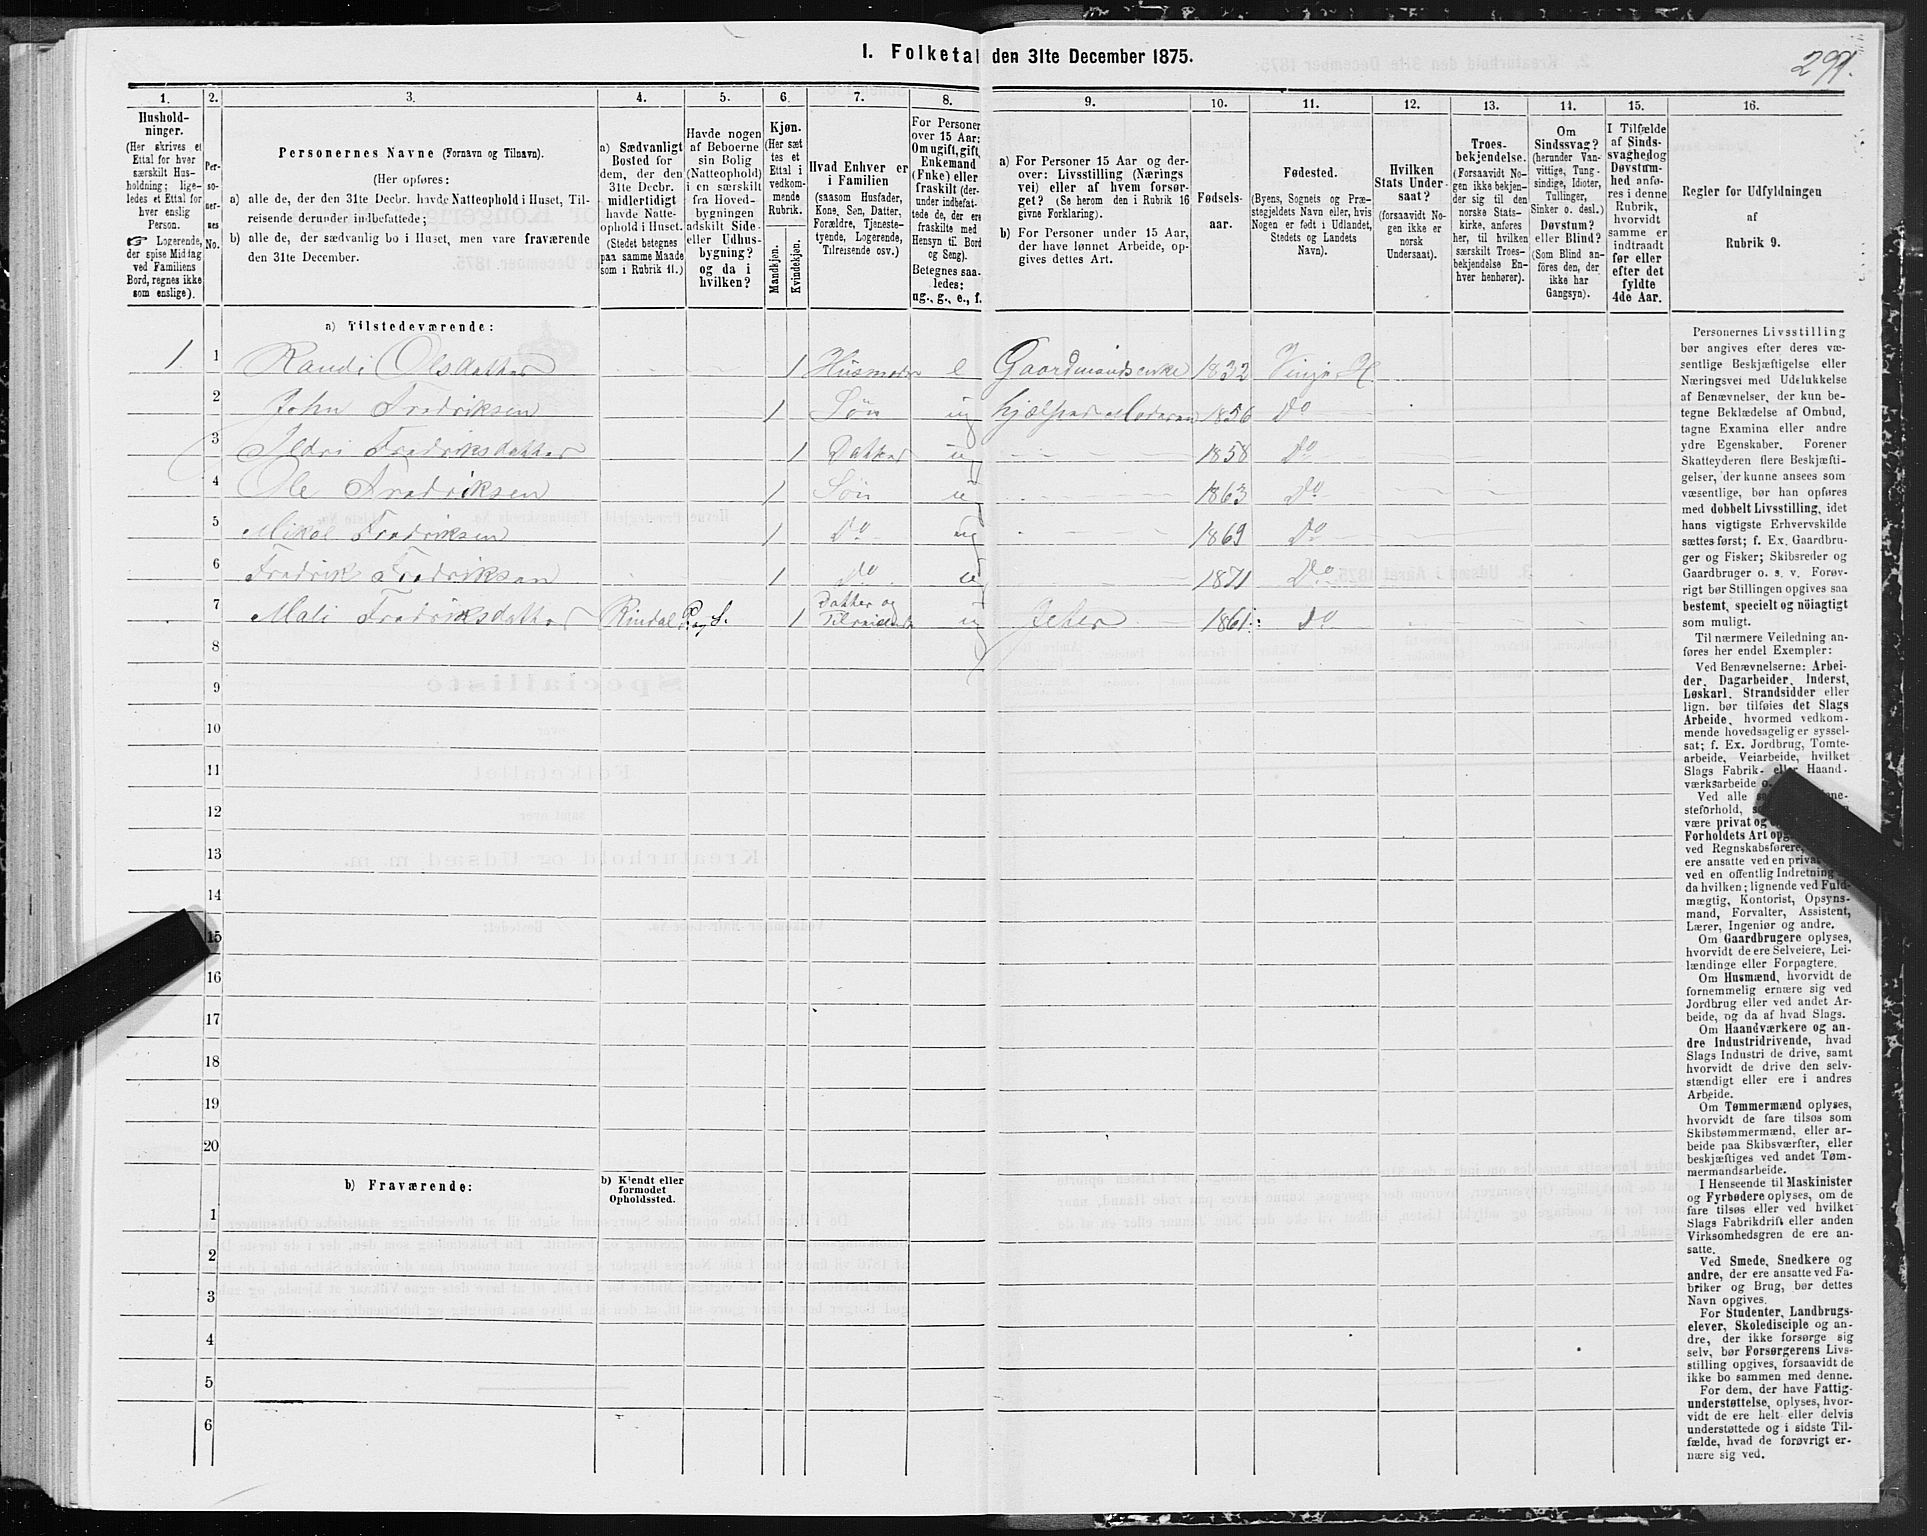 I. Folketal den 31te December 1875.
299.
1. 2. 3. 4. 5. 6. 7. 8. 9. 10. 11. 12. 13. 14. 15. 16.
Hushold-
ninger.
(Her skrives et
Ettal for hver
særskilt Hus-
holdning; lige-
ledes et Ettal for
hver enslig
Person.
☞ Logerende,
der spise Middag
ved Familiens
Bord, regnes ikke
som enslige).
Per-
so-
ner-
nes
No.
Personernes Navne (Fornavn og Tilnavn).
(Her opføres:
a) alle de, der den 31te Decbr. havde Natteophold i Huset, Til-
reisende derunder indbefattede;
b) alle de, der sædvanlig bo i Huset, men vare fraværende
den 31te December.
a) Sædvanligt
Bosted for
dem, der den
31te Decbr.
midlertidigt
havde Natte-
ophold i Huset.
(Stedet betegnes
paa samme Maade
som i Rubrik 11.)
Havde nogen
af Beboerne
sin Bolig
(Natteophold)
i en særskilt
fra Hoved-
bygningen
adskilt Side-
eller Udhus-
bygning?
og da i
hvilken?
Kjøn.
(Her sæt
tes et
Ettal i
vedkom-
mende
Rubrik.
Mandkjøn.
Kvindekjøn.
Hvad Enhver er
i Familien
(saasom Husfader,
Kone, Søn, Datter,
Forældre, Tjeneste-
tyende, Logerende,
Tilreisende osv.)
For Personer
over 15 Aar:
Om ugift, gift,
Enkemand
(Enke) eller
fraskilt (der-
under indbefat-
tede de, der ere
fraskilte med
Hensyn til Bord
og Seng).
Betegnes saa-
ledes:
ug., g., e., f.
a) For Personer 15 Aar og der-
over: Livsstilling (Nærings
vei) eller af hvem forsør-
get? (Se herom den i Rubrik 16
givne Forklaring).
b) For Personer under 15 Aar,
der have lønnet Arbeide, op-
gives dettes Art.
Fødsels-
aar.
Fødested.
(Byens, Sognets og Præ-
stegjeldets Navn eller, hvis
Nogen er født i Udlandet,
Stedets og Landets
Navn).
Hvilken
Stats Under-
saat?
(forsaavidt No-
gen ikke er
norsk
Undersaat).
Troes-
bekjendelse.
(Forsaavidt No-
gen ikke bekjen-
der sig til den
norske Stats-
kirke, anføres
her, til hvilken
særskilt Troes-
bekjendelse En-
hver henhører).
Om
Sindssvag?
(herunder Van-
vittige, Tung-
sindige, Idioter,
Tullinger,
Sinker o. desl.)
Døvstum?
eller Blind?
(Som Blind an-
føres den, der
ikke har
Gangsyn).
I Tilfælde
af Sinds-
svaghed og
Døvstum-
hed anfø-
res i denne
Rubrik,
hvorvidt
samme er
indtraadt
før eller
efter det
fyldte
4de Aar.
Regler for Udfyldningen
af
Rubrik 9.
a) Tilstedeværende:
1 1 Randi Olsdatter 1 Husmoder e Gaardmandsenke 1832 Vinje H
2 John Fredriksen 1 Søn ug hjælper Moderen 1856 Do
3 Ildri Fredriksdatter 1 Datter ug 1858 Do
4 Ole Fredriksen 1 Søn u 1863 Do
5 Mikal Fredriksen 1 Do ug 1869 Do
6 Fredrik Fredriksen 1 Do u 1871 Do
7 Mali Fredriksdatter Rindal 1 Datter og ug 1861 Do
8
9
10
11
12
13
14
15
16
17
18
19
20
b) Fraværende:
b) Kjendt eller
formodet
Opholdssted.
1
2
3
4
5
6
Personernes Livsstilling
bør angives efter deres væ-
sentlige Beskjæftigelse eller
Næringsvei med Udelukkelse
af Benævnelser, der kun be-
tegne Beklædelse af Ombud,
tagne Examina eller andre
ydre Egenskaber. Forener
Skatteyderen flere Beskjæfti-
gelser, der kunne ansees som
væsentlige, bør han opføres
med dobbelt Livsstilling, idet
hans vigtigste Erhvervskilde
sættes først; f. Ex. Gaardbru-
ger og Fisker; Skibsreder og
Gaardbruger o. s. v. Forøv-
rigt bør Stillingen opgives saa
bestemt, specielt og nöiagtigt
som muligt.
Til nærmere Veiledning an-
føres her endel Exempler:
Ved Benævnelserne: Arbei-
der, Dagarbeider, Inderst,
Løskarl, Strandsidder eller
lign. bør tilføies det Slags
Arbeide, hvormed vedkom-
mende hovedsagelig er syssel-
sat; f. Ex. Jordbrug, Tomte-
arbeide, Veiarbeide, hvilket
Slags Fabrik- eller Haand-
værksarbeide o.
Ved alle
steforhold,
være privat og
Forholdets Art
ved Regnskabsførere,
ere ansatte ved en privat
ved en offentlig Indretning
da hvilken; lignende ved Fuld-
mægtig, Kontorist, Opsyns-
mand, Forvalter, Assistent,
Lærer, Ingeniør og andre.
Om Gaardbrugere oplyses,
hvorvidt de ere Selveiere, Lei-
lændinge eller Forpagtere.
Om Husmænd, hvorvidt de
fornemmelig ernære sig ved
Jordbrug eller ved andet Ar-
beide, og da af hvad Slags.
Om Haandværkere og an-
dre Industridrivende, hvad
Slags Industri de drive, samt
hvorvidt de drive den selv-
stændigt eller ere i andres
Arbeide.
Om Tømmermænd oplyses,
hvorvidt de fare tilsøs som
Skibstømmermænd, eller ar-
beide paa Skibsværfter, eller
beskjæftiges ved andet Tøm-
mermandsarbeide.
I Henseende til Maskinister
og Fyrbødere oplyses, om de
fare tilsøs eller ved hvilket
Slags Fabrikdrift eller anden
Virksomhedsgren de ere an-
satte.
Ved Smede, Snedkere og
andre, der ere ansatte ved Fa-
briker og Brug, bør dettes
Navn opgives.
For Studenter, Landbrugs-
elever, Skoledisciple og an-
dre, der ikke forsørge sig
selv, bør Forsørgerens Livs-
stilling opgives, forsaavidt de
ikke bo sammen med denne.
For dem, der have Fattig-
understøttelse, oplyses, hvor-
vidt de ere helt eller delvis
understøttede og i sidste Til-
fælde, hvad de forøvrigt er-
nære sig ved.